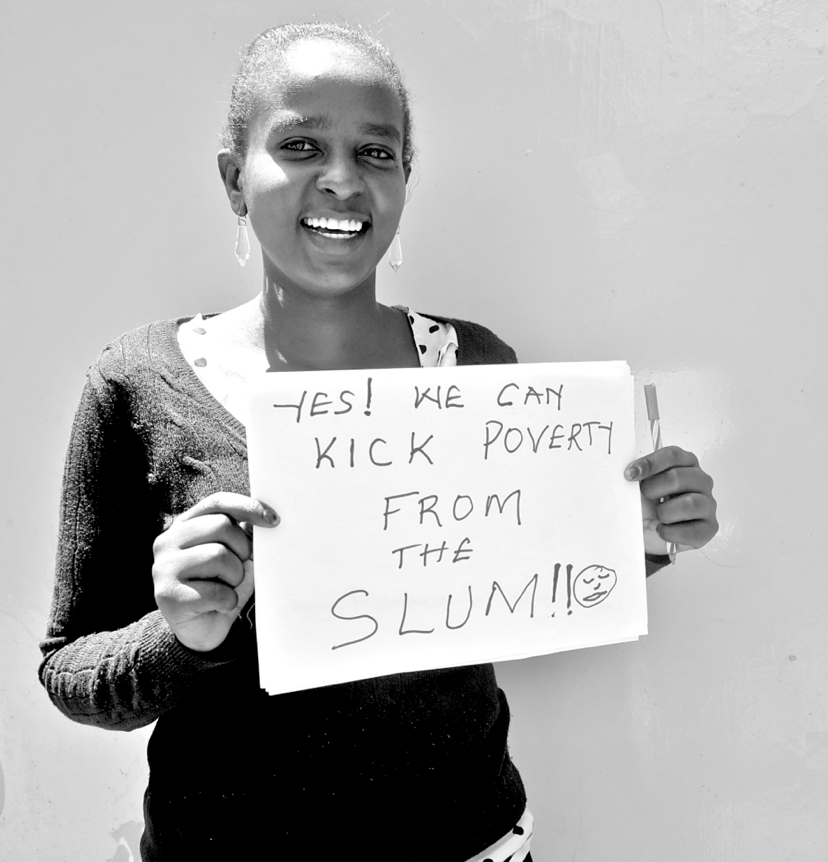 YES! WE CAN
KICK POVERTY
FROM
THE
SLUM!!